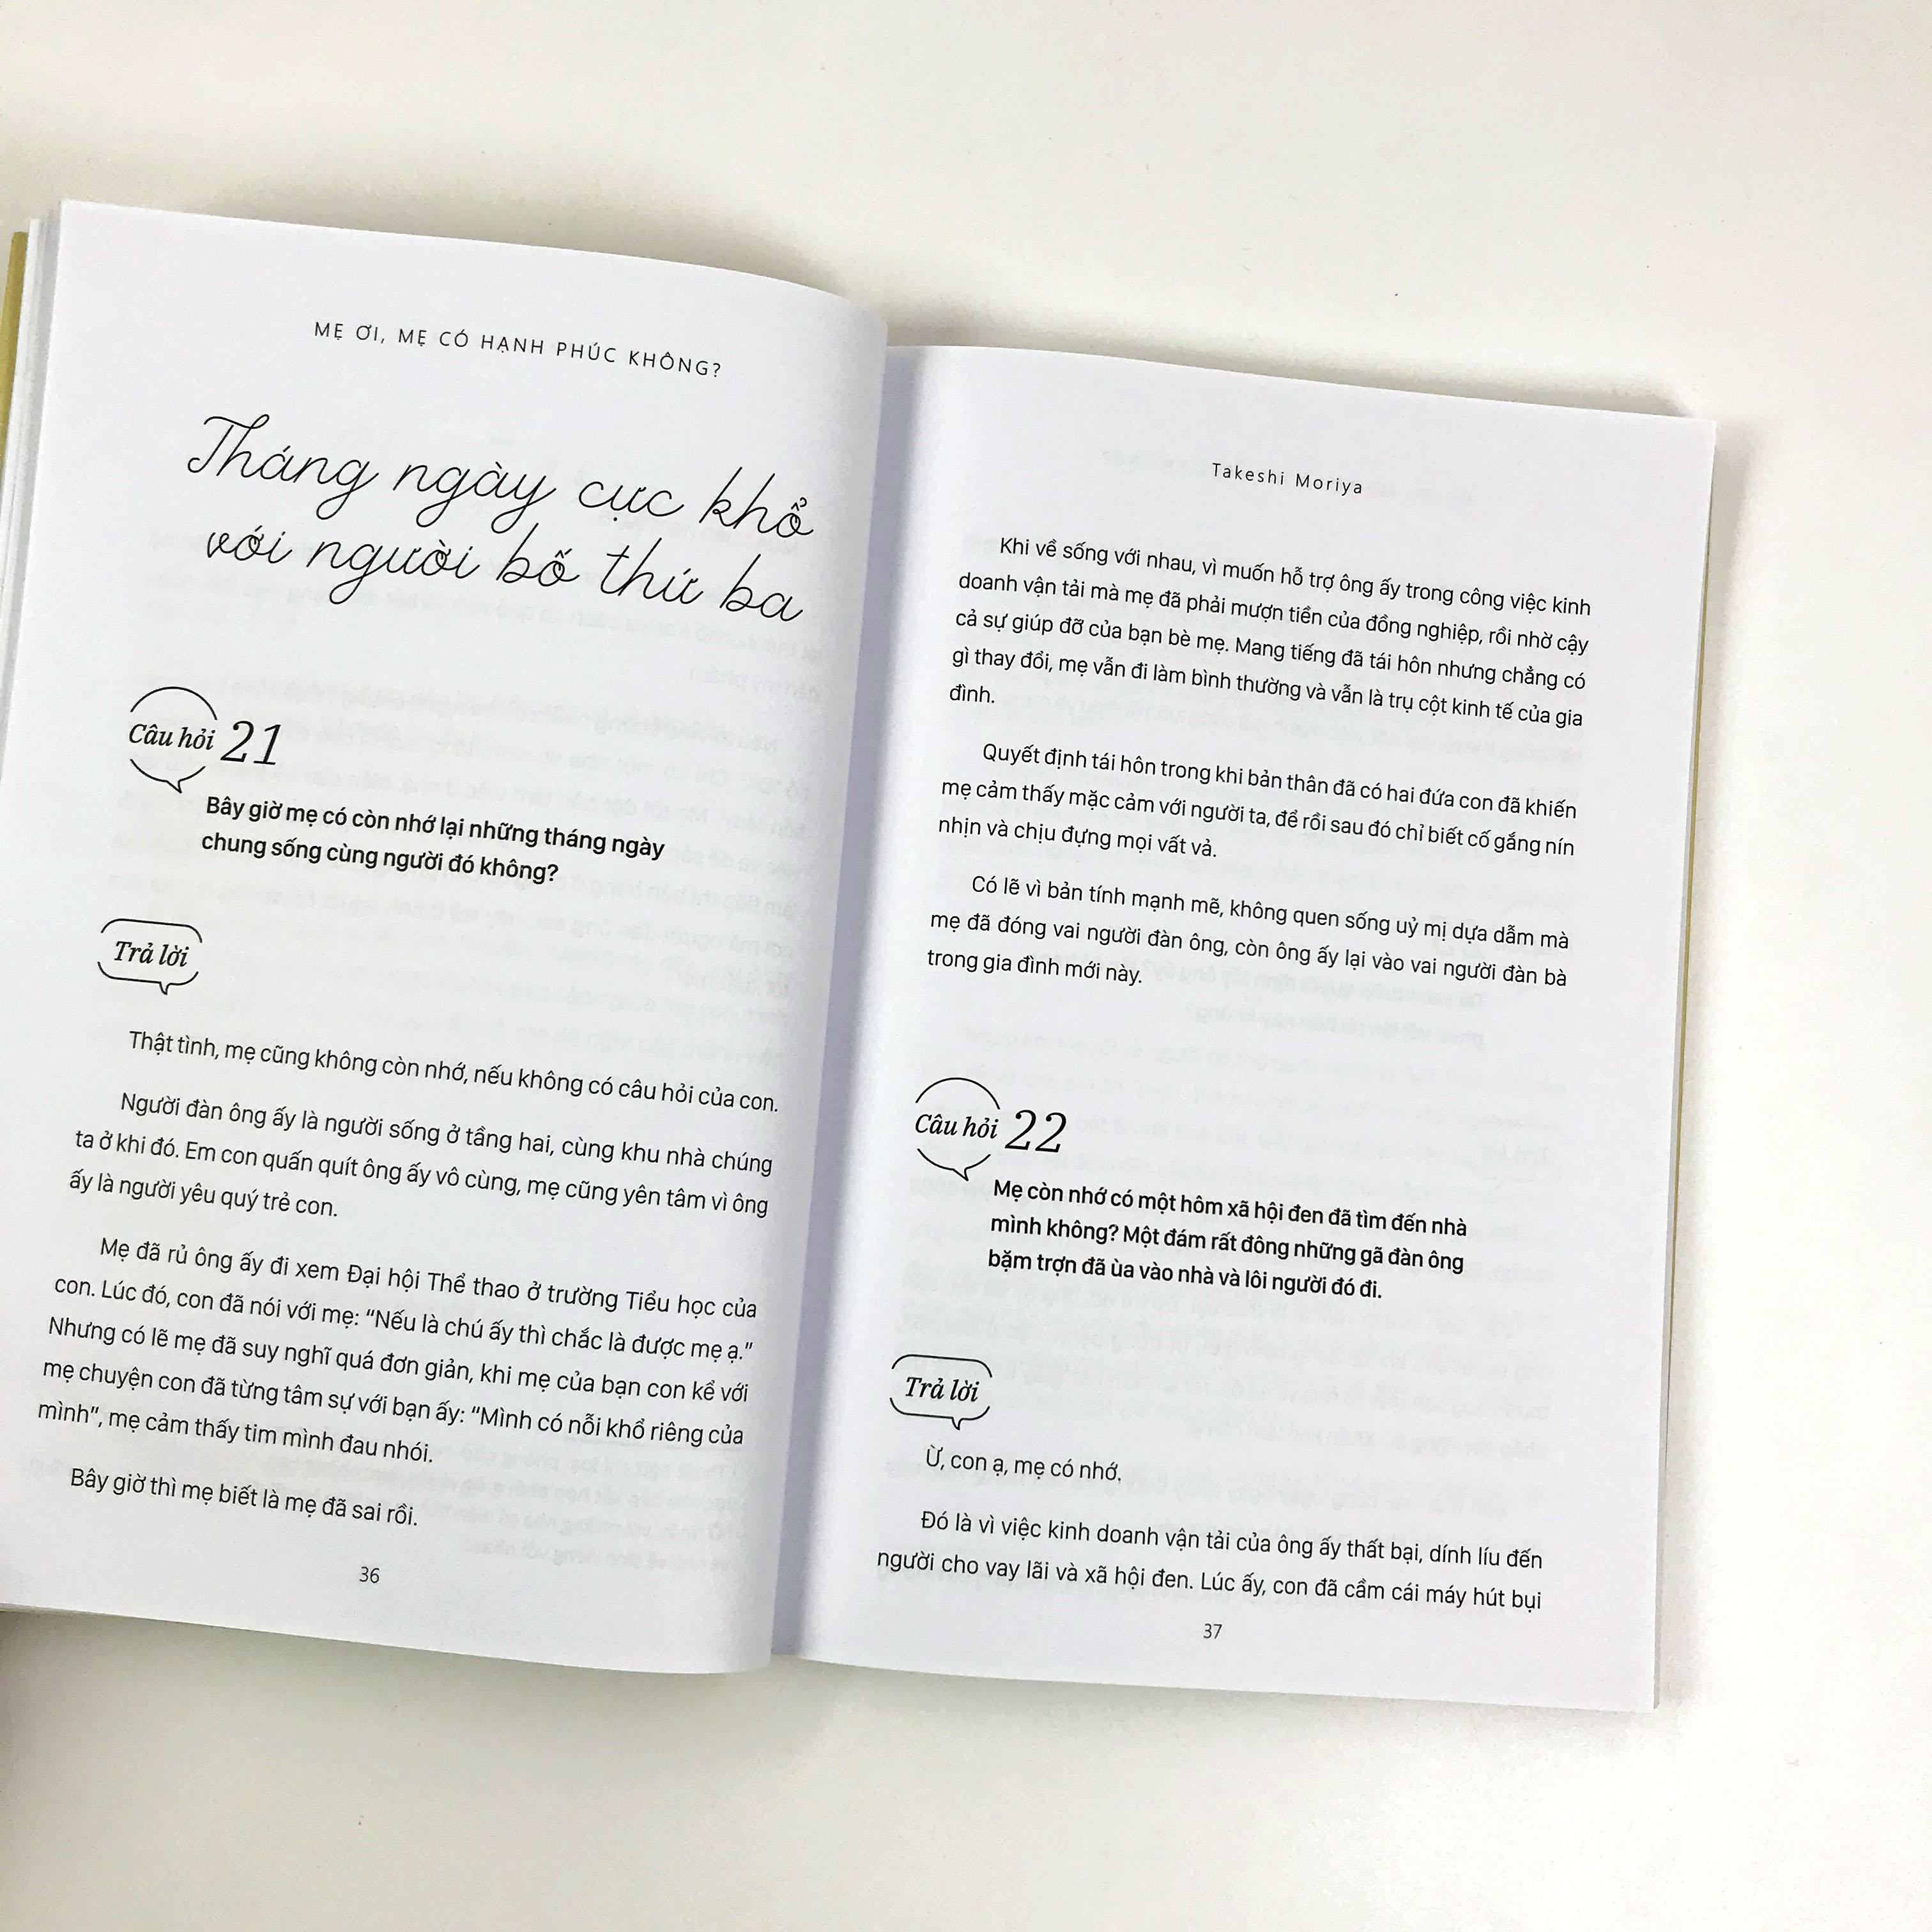 MẸ ƠI, MẸ CÓ HẠNH PHÚC KHÔNG?
Tháng ngày cực khổ
với người bố thứ ba
Câu hỏi 21
Bây giờ mẹ có còn nhớ lại những tháng ngày
chung sống cùng người đó không?
Trả lời
Thật tình, mẹ cũng không còn nhớ, nếu không có câu hỏi của con.
Người đàn ông ấy là người sống ở tầng hai, cùng khu nhà chúng
ta ở khi đó. Em con quấn quít ông ấy vô cùng, mẹ cũng yên tâm vì ông
ấy là người yêu quý trẻ con.
Mẹ đã rủ ông ấy đi xem Đại hội Thể thao ở trường Tiểu học của
con. Lúc đó, con đã nói với mẹ: “Nếu là chú ấy thì chắc là được mẹ ạ.”
Nhưng có lẽ mẹ đã suy nghĩ quá đơn giản, khi mẹ của bạn con kể với
mẹ chuyện con đã từng tâm sự với bạn ấy: “Mình có nỗi khổ riêng của
mình”, mẹ cảm thấy tim mình đau nhói.
Bây giờ thì mẹ biết là mẹ đã sai rồi.
36
Takeshi Moriya
Khi về sống với nhau, vì muốn hỗ trợ ông ấy trong công việc kinh
doanh vận tải mà mẹ đã phải mượn tiền của đồng nghiệp, rồi nhờ cậy
cả sự giúp đỡ của bạn bè mẹ. Mang tiếng đã tái hôn nhưng chẳng có
gì thay đổi, mẹ vẫn đi làm bình thường và vẫn là trụ cột kinh tế của gia
đình.
Quyết định tái hôn trong khi bản thân đã có hai đứa con đã khiến
mẹ cảm thấy mặc cảm với người ta, để rồi sau đó chỉ biết cố gắng nín
nhịn và chịu đựng mọi vất vả.
Có lẽ vì bản tính mạnh mẽ, không quen sống uỷ mị dựa dẫm mà
mẹ đã đóng vai người đàn ông, còn ông ấy lại vào vai người đàn bà
trong gia đình mới này.
Câu hỏi 22
Mẹ còn nhớ có một hôm xã hội đen đã tìm đến nhà
mình không? Một đám rất đông những gã đàn ông
bặm trợn đã ùa vào nhà và lôi người đó đi.
Trả lời
Ừ, con ạ, mẹ có nhớ.
Đó là vì việc kinh doanh vận tải của ông ấy thất bại, dính líu đến
người cho vay lãi và xã hội đen. Lúc ấy, con đã cầm cái máy hút bụi
37